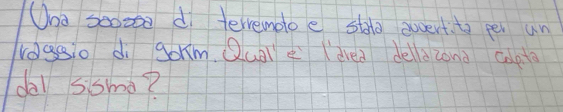 Una scossa di terremoto e stata avvertita per un
raggio di 90km. Qual'e' l'area della zona colpita
dal sisma?